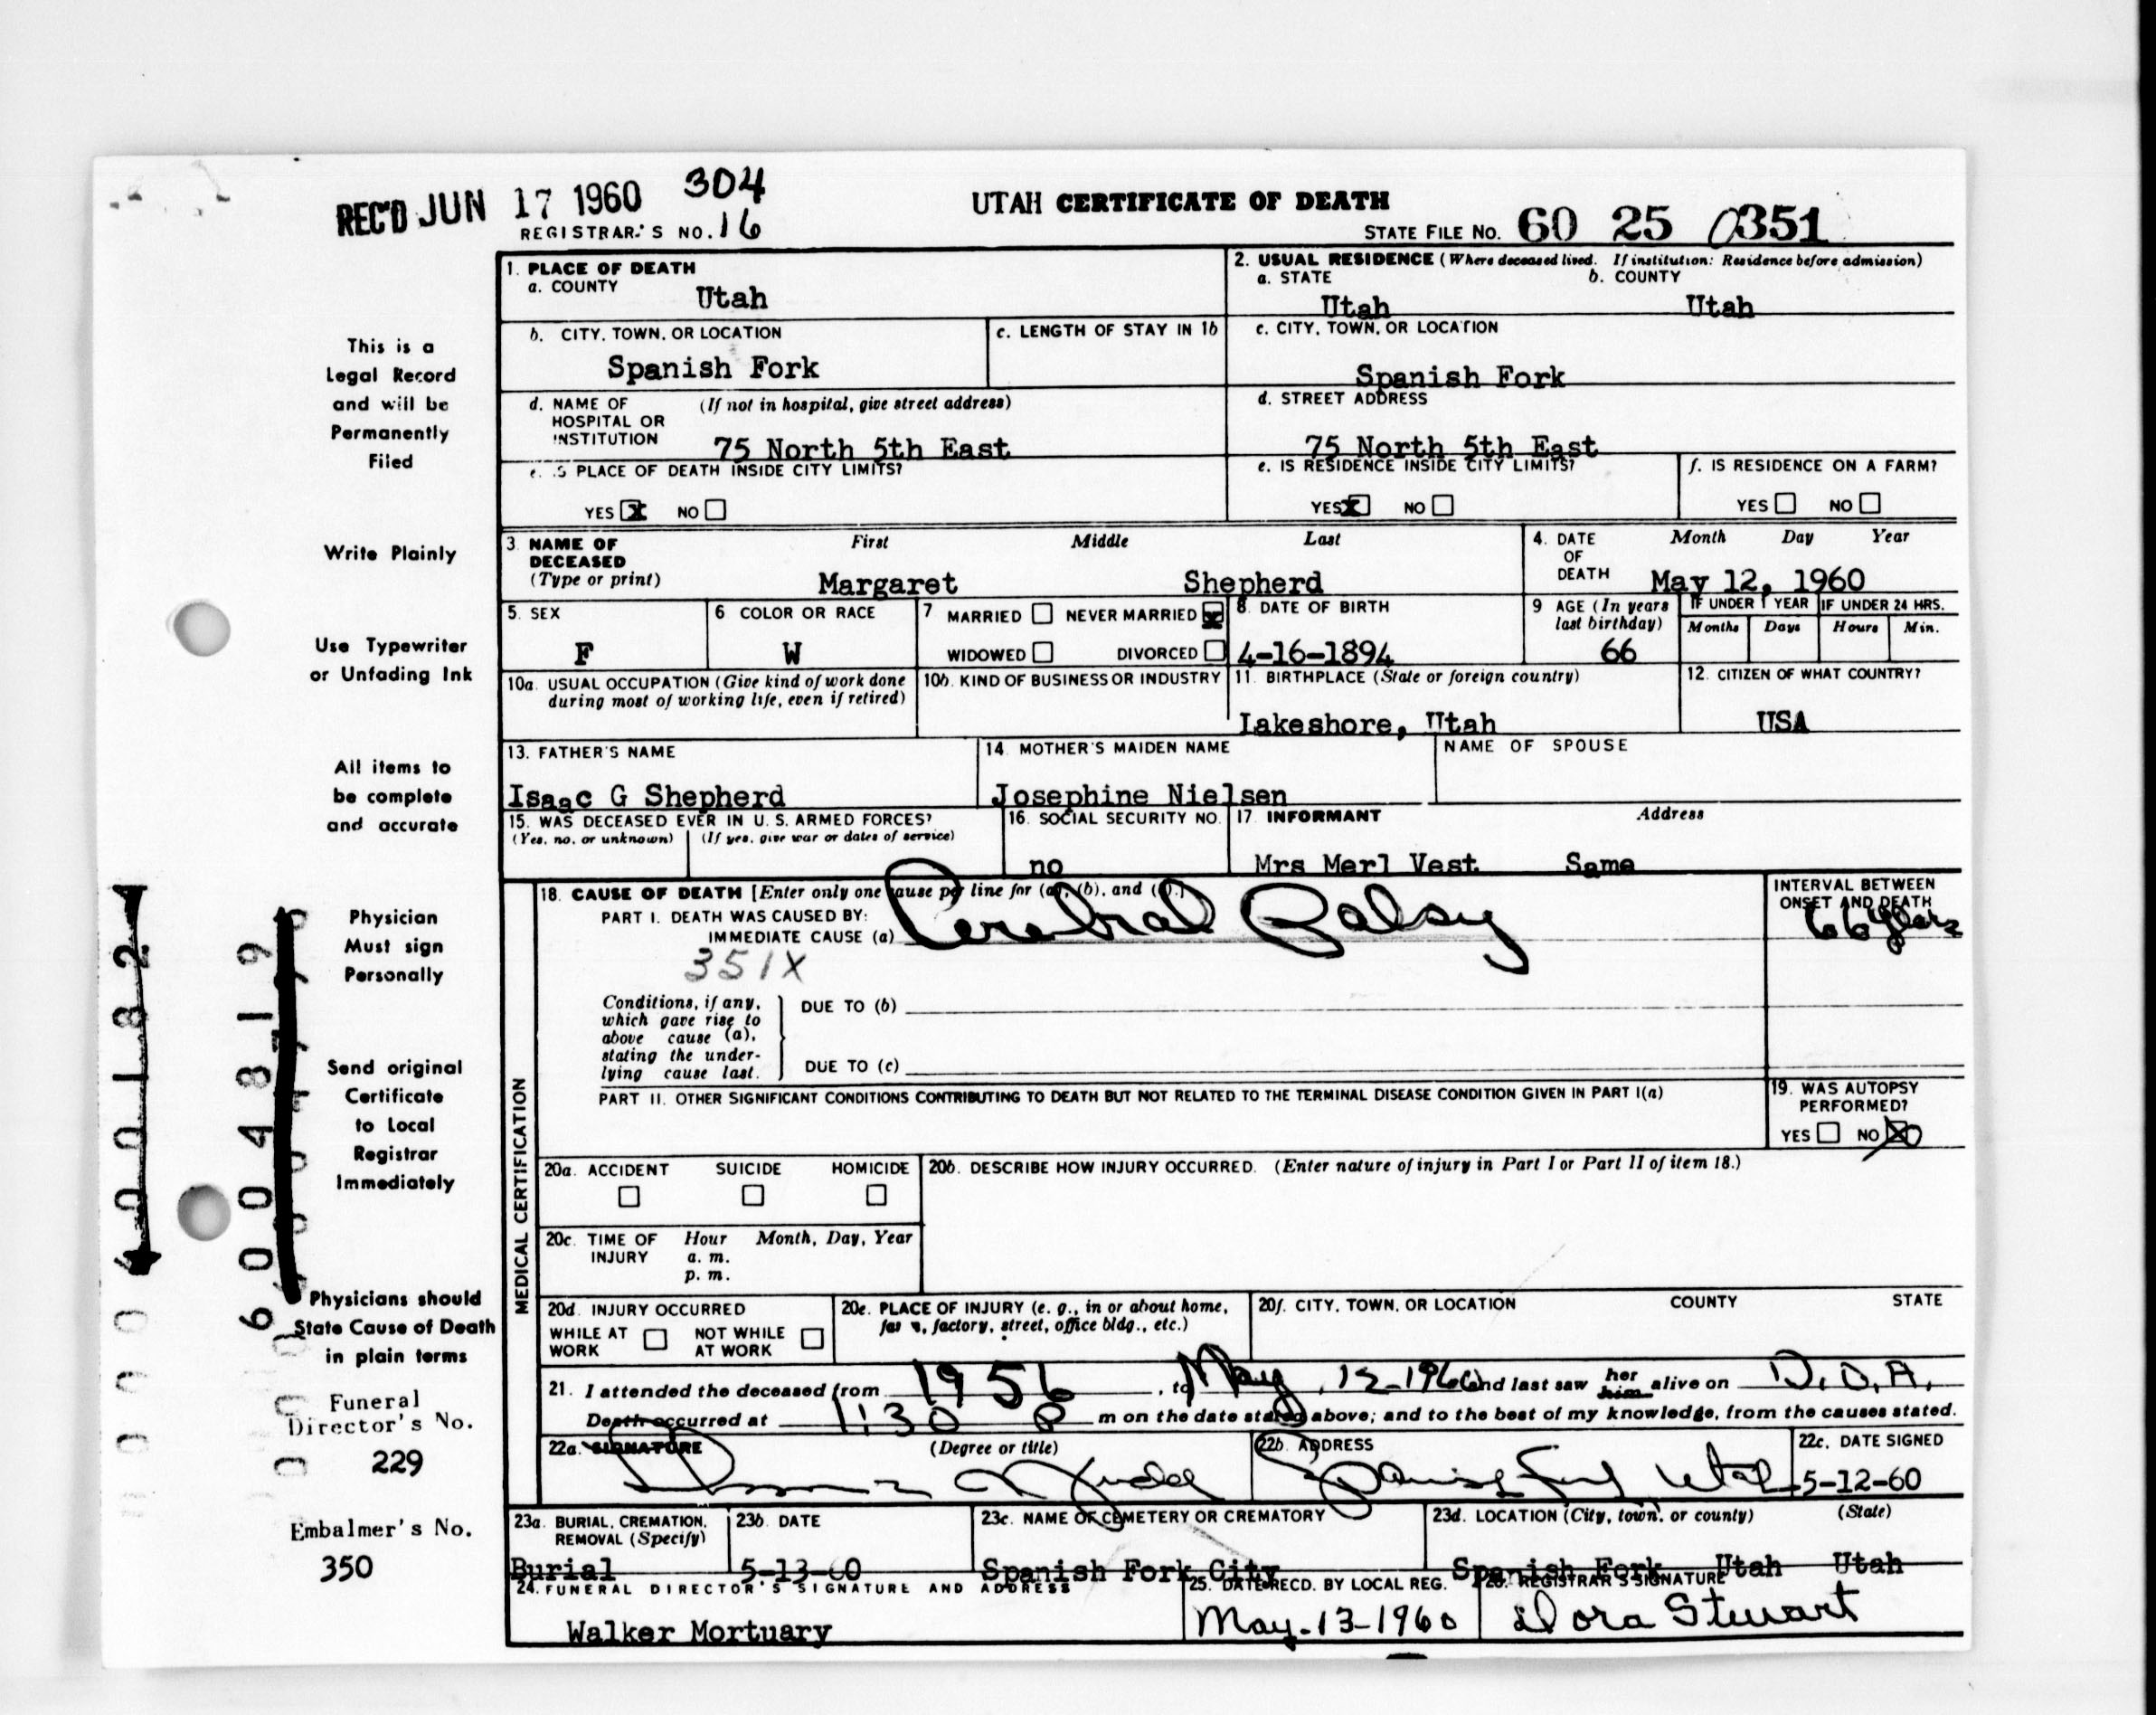 REC'D JUN 17 1960 304
REGISTRAR'S NO. 16
UTAH CERTIFICATE OF DEATH
STATE FILE NO. 60 25 0351
This is a
Legal Record
and will be
Permanently
Filed
Write Plainly
Use Typewriter
or Unfading Ink
All items to
be complete
and accurate
Physician
Must sign
Personally
Send original
Certificate
to Local
Registrar
Immediately
Physicians should
State Cause of Death
in plain terms
Funeral
Director's No.
229
Embalmer's No.
350
1. PLACE OF DEATH
a. COUNTY Utah
2. USUAL RESIDENCE (Where deceased lived. If institution: Residence before admission)
a. STATE Utah b. COUNTY Utah
b. CITY, TOWN, OR LOCATION Spanish Fork
c. LENGTH OF STAY IN 1b
c. CITY, TOWN, OR LOCATION Spanish Fork
d. NAME OF (If not in hospital, give street address)
HOSPITAL OR
INSTITUTION 75 North 5th East
d. STREET ADDRESS
75 North 5th East
e. IS PLACE OF DEATH INSIDE CITY LIMITS?
YES X NO
e. IS RESIDENCE INSIDE CITY LIMITS?
YES X NO
f. IS RESIDENCE ON A FARM?
YES NO
3. NAME OF DECEASED (Type or print)
First Middle Last
Margaret Shepherd
4. DATE OF DEATH Month Day Year
May 12, 1960
5. SEX F
6 COLOR OR RACE W
7 MARRIED NEVER MARRIED X
WIDOWED DIVORCED
8. DATE OF BIRTH 4-16-1894
9 AGE (In years last birthday) 66
IF UNDER 1 YEAR IF UNDER 24 HRS.
Months Days Hours Min.
10a. USUAL OCCUPATION (Give kind of work done
during most of working life, even if retired)
10b. KIND OF BUSINESS OR INDUSTRY
11. BIRTHPLACE (State or foreign country)
Lakeshore, Utah
12. CITIZEN OF WHAT COUNTRY?
USA
13. FATHER'S NAME
Isaac G Shepherd
14. MOTHER'S MAIDEN NAME
Josephine Nielsen
NAME OF SPOUSE
15. WAS DECEASED EVER IN U. S. ARMED FORCES?
(Yes, no, or unknown) (If yes, give war or dates of service)
16. SOCIAL SECURITY NO.
no
17. INFORMANT Address
Mrs Merl Vest Same
MEDICAL CERTIFICATION
18. CAUSE OF DEATH [Enter only one cause per line for (a), (b), and (c).]
PART I. DEATH WAS CAUSED BY:
IMMEDIATE CAUSE (a) Cerebral Palsy
351X
INTERVAL BETWEEN
ONSET AND DEATH
66 years
Conditions, if any,
which gave rise to
above cause (a),
stating the under-
lying cause last.
DUE TO (b)
DUE TO (c)
PART II. OTHER SIGNIFICANT CONDITIONS CONTRIBUTING TO DEATH BUT NOT RELATED TO THE TERMINAL DISEASE CONDITION GIVEN IN PART I(a)
19. WAS AUTOPSY
PERFORMED?
YES NO X
20a. ACCIDENT SUICIDE HOMICIDE
20b. DESCRIBE HOW INJURY OCCURRED. (Enter nature of injury in Part I or Part II of item 18.)
20c. TIME OF INJURY Hour Month, Day, Year
a. m.
p. m.
20d. INJURY OCCURRED
WHILE AT WORK NOT WHILE AT WORK
20e. PLACE OF INJURY (e. g., in or about home,
farm, factory, street, office bldg., etc.)
20f. CITY, TOWN, OR LOCATION COUNTY STATE
21. I attended the deceased from 1956, to May, 12-1960 and last saw her him alive on D.O.A.
Death occurred at 1:30 P m on the date stated above; and to the best of my knowledge, from the causes stated.
22a. SIGNATURE (Degree or title)
22b. ADDRESS
Spanish Fork Utah
22c. DATE SIGNED
5-12-60
23a. BURIAL, CREMATION,
REMOVAL (Specify)
Burial
23b. DATE
5-13-60
23c. NAME OF CEMETERY OR CREMATORY
Spanish Fork City
23d. LOCATION (City, town, or county) (State)
Spanish Fork Utah Utah
24. FUNERAL DIRECTOR'S SIGNATURE AND ADDRESS
Walker Mortuary
25. DATE RECD. BY LOCAL REG.
May-13-1960
26. REGISTRAR'S SIGNATURE
Dora Stewart